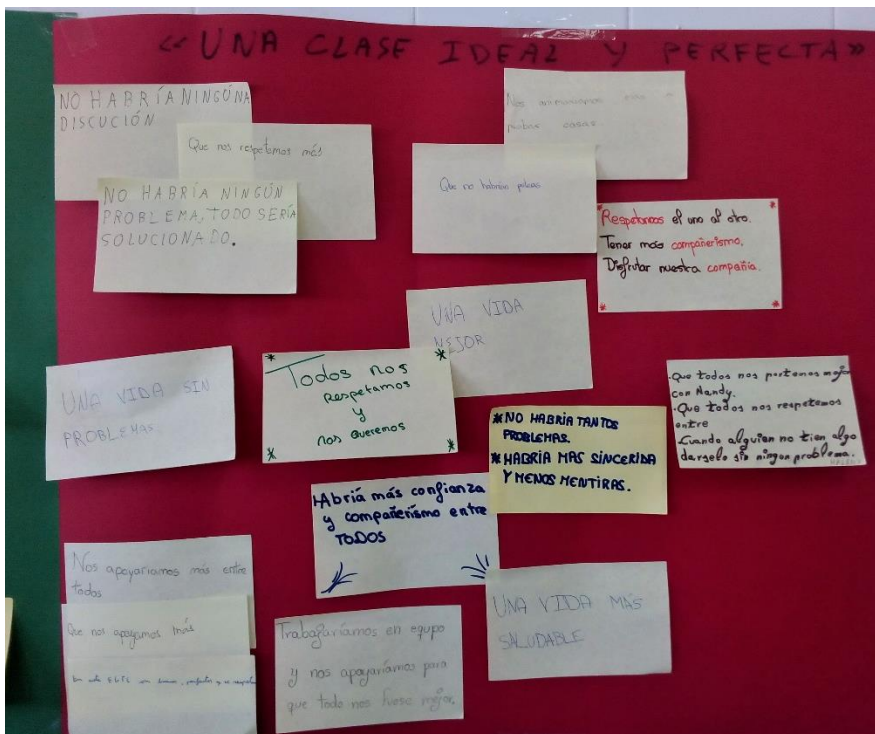 «UNA CLASE IDEAL Y PERFECTA»
NO HABRÍA NINGÚNA
DISCUCIÓN
Que nos respetemos más
NO HABRÍA NINGÚN
PROBLEMA, TODO SERÍA
SOLUCIONADO.
Nos animariamos
cosas
Que no habrían peleas
Respetarnos el uno al otro.
Tener más compañerismo.
Disfrutar nuestra compañia.
UNA VIDA
MEJOR
UNA VIDA SIN
PROBLEMAS
Todos nos
Respetamos
y
nos Queremos
*NO HABRÍA TANTOS
PROBLEMAS.
*HABRÍA MAS SINCERIDA
Y MENOS MENTIRAS.
.Que todos nos portemos mejor
con Nandy.
.Que todos nos respetemos
entre
.Cuando alguien no tien algo
darselo sin ningun problema.
HAbria más confianza
y compañerismo entre
TODOS
Nos apoyariamos más entre
todos
Que nos apoyamos más
UNA VIDA MÁS
SALUDABLE
Trabajaríamos en equpo
y nos apoyaríamos para
que todo nos fuese mejor.